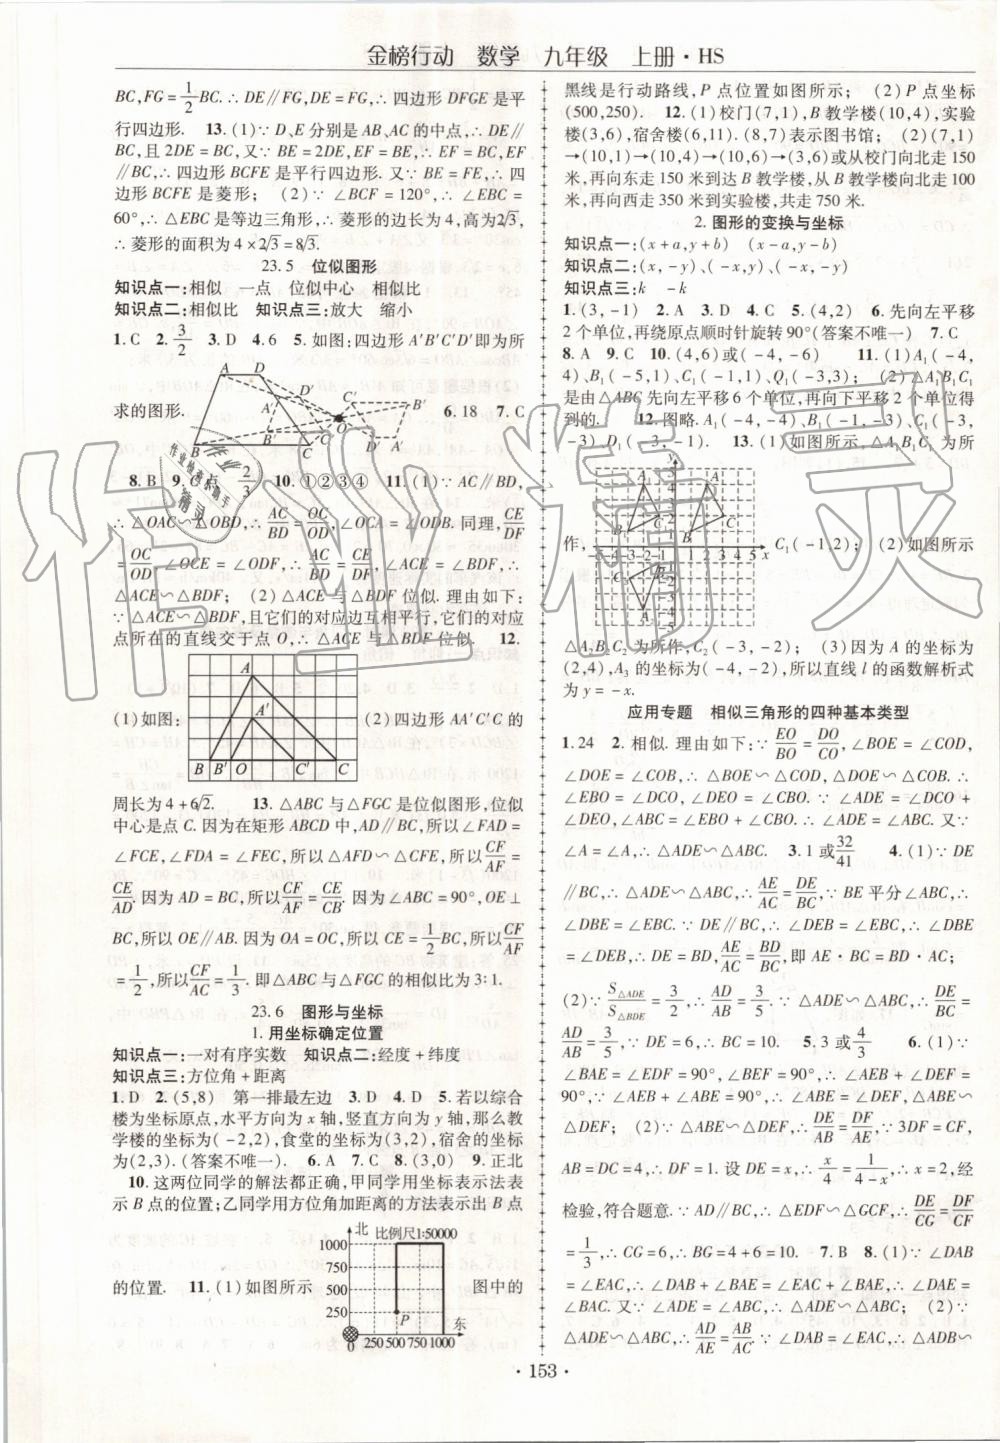 金榜行动　数学　九年级　上册·HS
BC,FG=1/2BC.∴DE∥FG,DE=FG,∴四边形DFGE是平
行四边形.　13.(1)∵D、E分别是AB、AC的中点,∴DE∥
BC,且2DE=BC.又∵BE=2DE,EF=BE,∴EF=BC,EF
∥BC,∴四边形BCFE是平行四边形.又∵BE=FE,∴四
边形BCFE是菱形；　(2)∵∠BCF=120°,∴∠EBC=
60°,∴△EBC是等边三角形,∴菱形的边长为4,高为2√3,
∴菱形的面积为4×2√3=8√3.
23.5　位似图形
知识点一:相似　一点　位似中心　相似比
知识点二:相似比　知识点三:放大　缩小
1.C　2.3/2　3.D　4.6　5.如图:四边形A′B′C′D′即为所
求的图形.
A D C′ B′ A′ O B′ D′ A′ B C
6.18　7.C
8.B　9.C点　2/3　10.①②③④　11.(1)∵AC∥BD,
∴△OAC∽△OBD,∴AC/BD=OC/OD,∠OCA=∠ODB.同理,CE/DF
=OC/OD,∠OCE=∠ODF,∴AC/BD=CE/DF,∠ACE=∠BDF,∴
△ACE∽△BDF；　(2)△ACE与△BDF位似.理由如下:
∵△ACE∽△BDF,且它们的对应边互相平行,它们的对应
点所在的直线交于点O,∴△ACE与△BDF位似.　12.
A
A′
B B′ O C′ C
(1)如图:　(2)四边形AA′C′C的
周长为4+6√2.　13.△ABC与△FGC是位似图形,位似
中心是点C.因为在矩形ABCD中,AD∥BC,所以∠FAD=
∠FCE,∠FDA=∠FEC,所以△AFD∽△CFE,所以CF/AF=
CE/AD.因为AD=BC,所以CF/AF=CE/CB.因为∠ABC=90°,OE⊥
BC,所以OE∥AB.因为OA=OC,所以CE=1/2BC,所以CF/AF
=1/2,所以CF/AC=1/3.即△ABC与△FGC的相似比为3:1.
23.6　图形与坐标
1.用坐标确定位置
知识点一:一对有序实数　知识点二:经度+纬度
知识点三:方位角+距离
1.D　2.(5,8)　第一排最左边　3.D　4.D　5.若以综合
楼为坐标原点,水平方向为x轴,竖直方向为y轴,那么教
学楼的坐标为(-2,2),食堂的坐标为(3,2),宿舍的坐标
为(2,3).(答案不唯一).　6.A　7.C　8.(3,0)　9.正北
10.这两位同学的解法都正确,甲同学用坐标表示法表
示B点的位置;乙同学用方位角加距离的方法表示出B点
的位置.　11.(1)如图所示　图中的
北 比例尺1:50000
1000
750
500
250
P 东
0 250 500 750 1000
黑线是行动路线,P点位置如图所示；　(2)P点坐标
(500,250).　12.(1)校门(7,1),B教学楼(10,4),实验
楼(3,6),宿舍楼(6,11).(8,7)表示图书馆；　(2)(7,1)
→(10,1)→(10,4)→(10,6)→(3,6)或从校门向北走150
米,再向东走150米到达B教学楼,从B教学楼向北走100
米,再向西走350米到实验楼,共走750米.
2.图形的变换与坐标
知识点一:(x+a,y+b)　(x-a,y-b)
知识点二:(x,-y)、(-x,y)、(-x,-y)
知识点三:k　-k
1.(3,-1)　2.A　3.D　4.C　5.(4,2)　6.先向左平移
2个单位,再绕原点顺时针旋转90°(答案不唯一)　7.C
8.A　9.C　10.(4,6)或(-4,-6)　11.(1)A₁(-4,
4),B₁(-5,1),C₁(-1,1),Q₁(-3,3)；　(2)△A₁B₁C₁
是由△ABC先向左平移6个单位,再向下平移2个单位得
到的.　12.图略.A₁(-4,-4),B₁(-1,-3),C₁(-3,
-3),D₁(-3,-1).　13.(1)如图所示,△A₁B₁C₁为所
作,　C₁(-1,2)；　(2)如图所示
△A₂B₂C₂为所作,C₂(-3,-2)；　(3)因为A的坐标为
(2,4),A₂的坐标为(-4,-2),所以直线l的函数解析式
为y=-x.
应用专题　相似三角形的四种基本类型
1.24　2.相似.理由如下:∵EO/BO=DO/CO,∠BOE=∠COD,
∠DOE=∠COB,∴△BOE∽△COD,△DOE∽△COB.∴
∠EBO=∠DCO,∠DEO=∠CBO.∵∠ADE=∠DCO+
∠DEO,∠ABC=∠EBO+∠CBO.∴∠ADE=∠ABC.又∵
∠A=∠A,∴△ADE∽△ABC.　3.1或32/41　4.(1)∵DE
∥BC,∴△ADE∽△ABC,∴AE/AC=DE/BC,∵BE平分∠ABC,∴
∠DBE=∠EBC.∵DE∥BC,∴∠DEB=∠EBC,∴∠DBE
=∠DEB,∴DE=BD,∴AE/AC=BD/BC,即AE·BC=BD·AC；
(2)∵S△ADE/S△BDE=3/2,∴AD/AB=3/5.∵△ADE∽△ABC,∴DE/BC=
AD/AB=3/5,∵DE=6,∴BC=10.　5.3或4/3　6.(1)∵
∠BAE=∠EDF=90°,∠BEF=90°,∴∠AEB+∠DEF=
90°,∠AEB+∠ABE=90°,∴∠ABE=∠DEF,△ABE∽
△DEF；　(2)∵△ABE∽△DEF,∴DE/AB=DF/AE,∵3DF=CF,
AB=DC=4,∴DF=1.设DE=x,∴x/4=1/(4-x),∴x=2,经
检验,符合题意.∵AD∥BC,∴△EDF∽△GCF,∴DE/CG=DF/CF
=1/3,∴CG=6,∴BG=4+6=10.　7.B　8.(1)∵∠DAB
=∠EAC,∴∠DAB+∠BAE=∠EAC+∠BAE,∴∠DAE=
∠BAC.又∵∠ADE=∠ABC,∴△ADE∽△ABC；　(2)∵
△ADE∽△ABC,∴AD/AE=AB/AC.∵∠DAB=∠EAC,∴△ADB∽
△AEC.
·153·